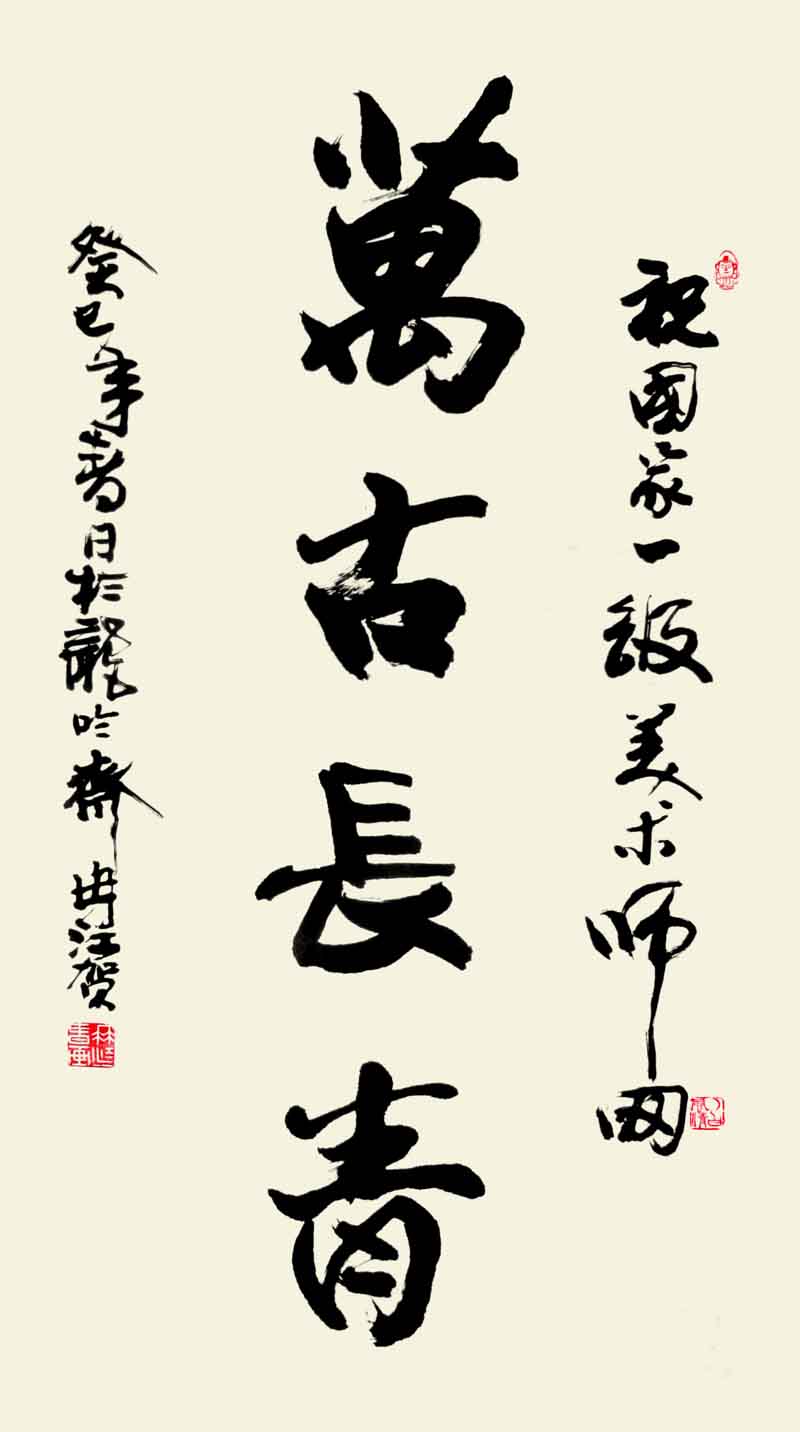 祝國家一级美术师网
萬古長青
癸巳年春日於龍吟齋冉江贺